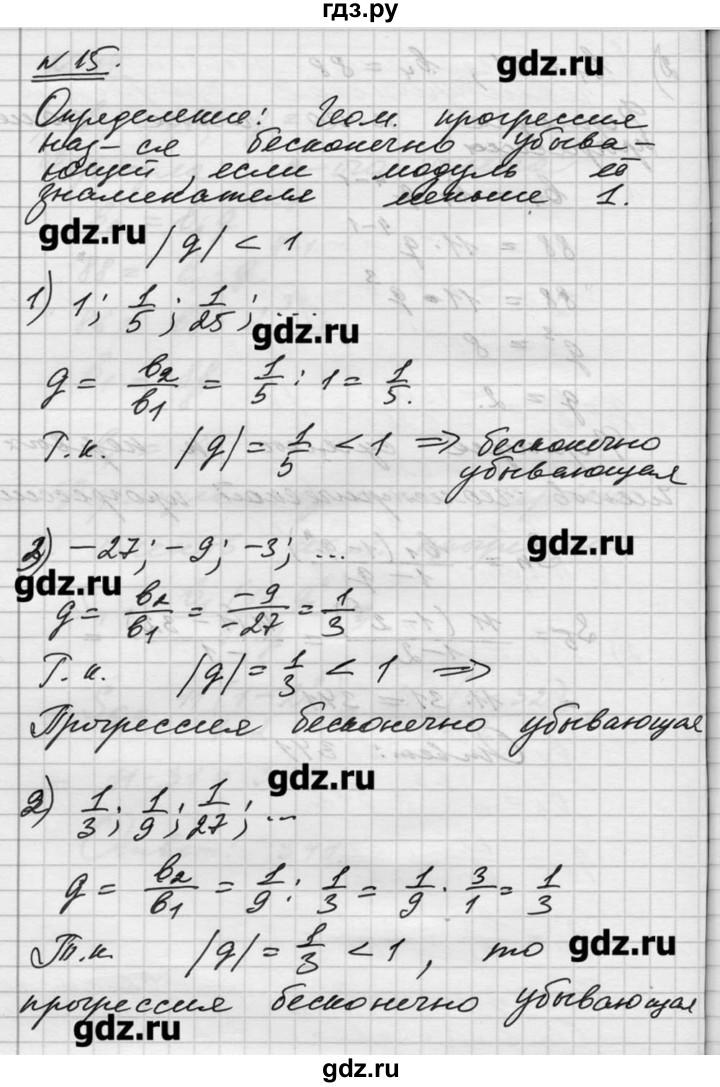 гдз.ру
№ 15.
gdz.ru
Определение: Геом. прогрессия
наз-ся бесконечно убыва-
ющей, если модуль её
знаменателя меньше 1.
gdz.ru
|q| < 1
1) 1; 1/5; 1/25; ...
gdz.ru
q = b2/b1 = 1/5 : 1 = 1/5.
Т.к. |q| = 1/5 < 1 => бесконечно
убывающая
3) -27; -9; -3; ...
gdz.ru
gdz.ru
q = b2/b1 = -9/-27 = 1/3
Т.к. |q| = 1/3 < 1 =>
Прогрессия бесконечно убывающая
gdz.ru
2) 1/3; 1/9; 1/27; ...
q = b2/b1 = 1/9 : 1/3 = 1/9 · 3/1 = 1/3
Т.к. |q| = 1/3 < 1, то
gdz.ru
прогрессия бесконечно убывающая
gdz.ru
gdz.ru